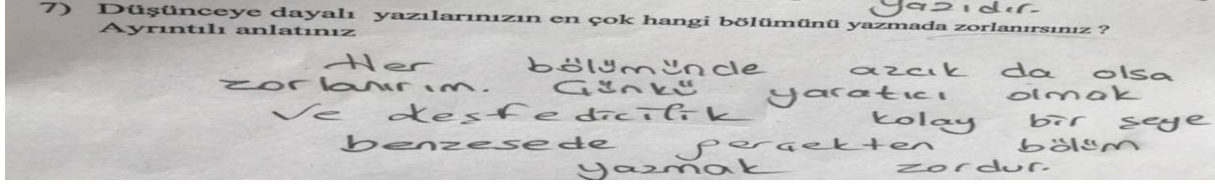 yazıdır.
7) Düşünceye dayalı yazılarınızın en çok hangi bölümünü yazmada zorlanırsınız ?
Ayrıntılı anlatınız
Her bölümünde azcık da olsa
zorlanırım. Çünkü yaratıcı olmak
ve keşfedicilik kolay bir şeye
benzesede gerçekten bölüm
yazmak zordur.